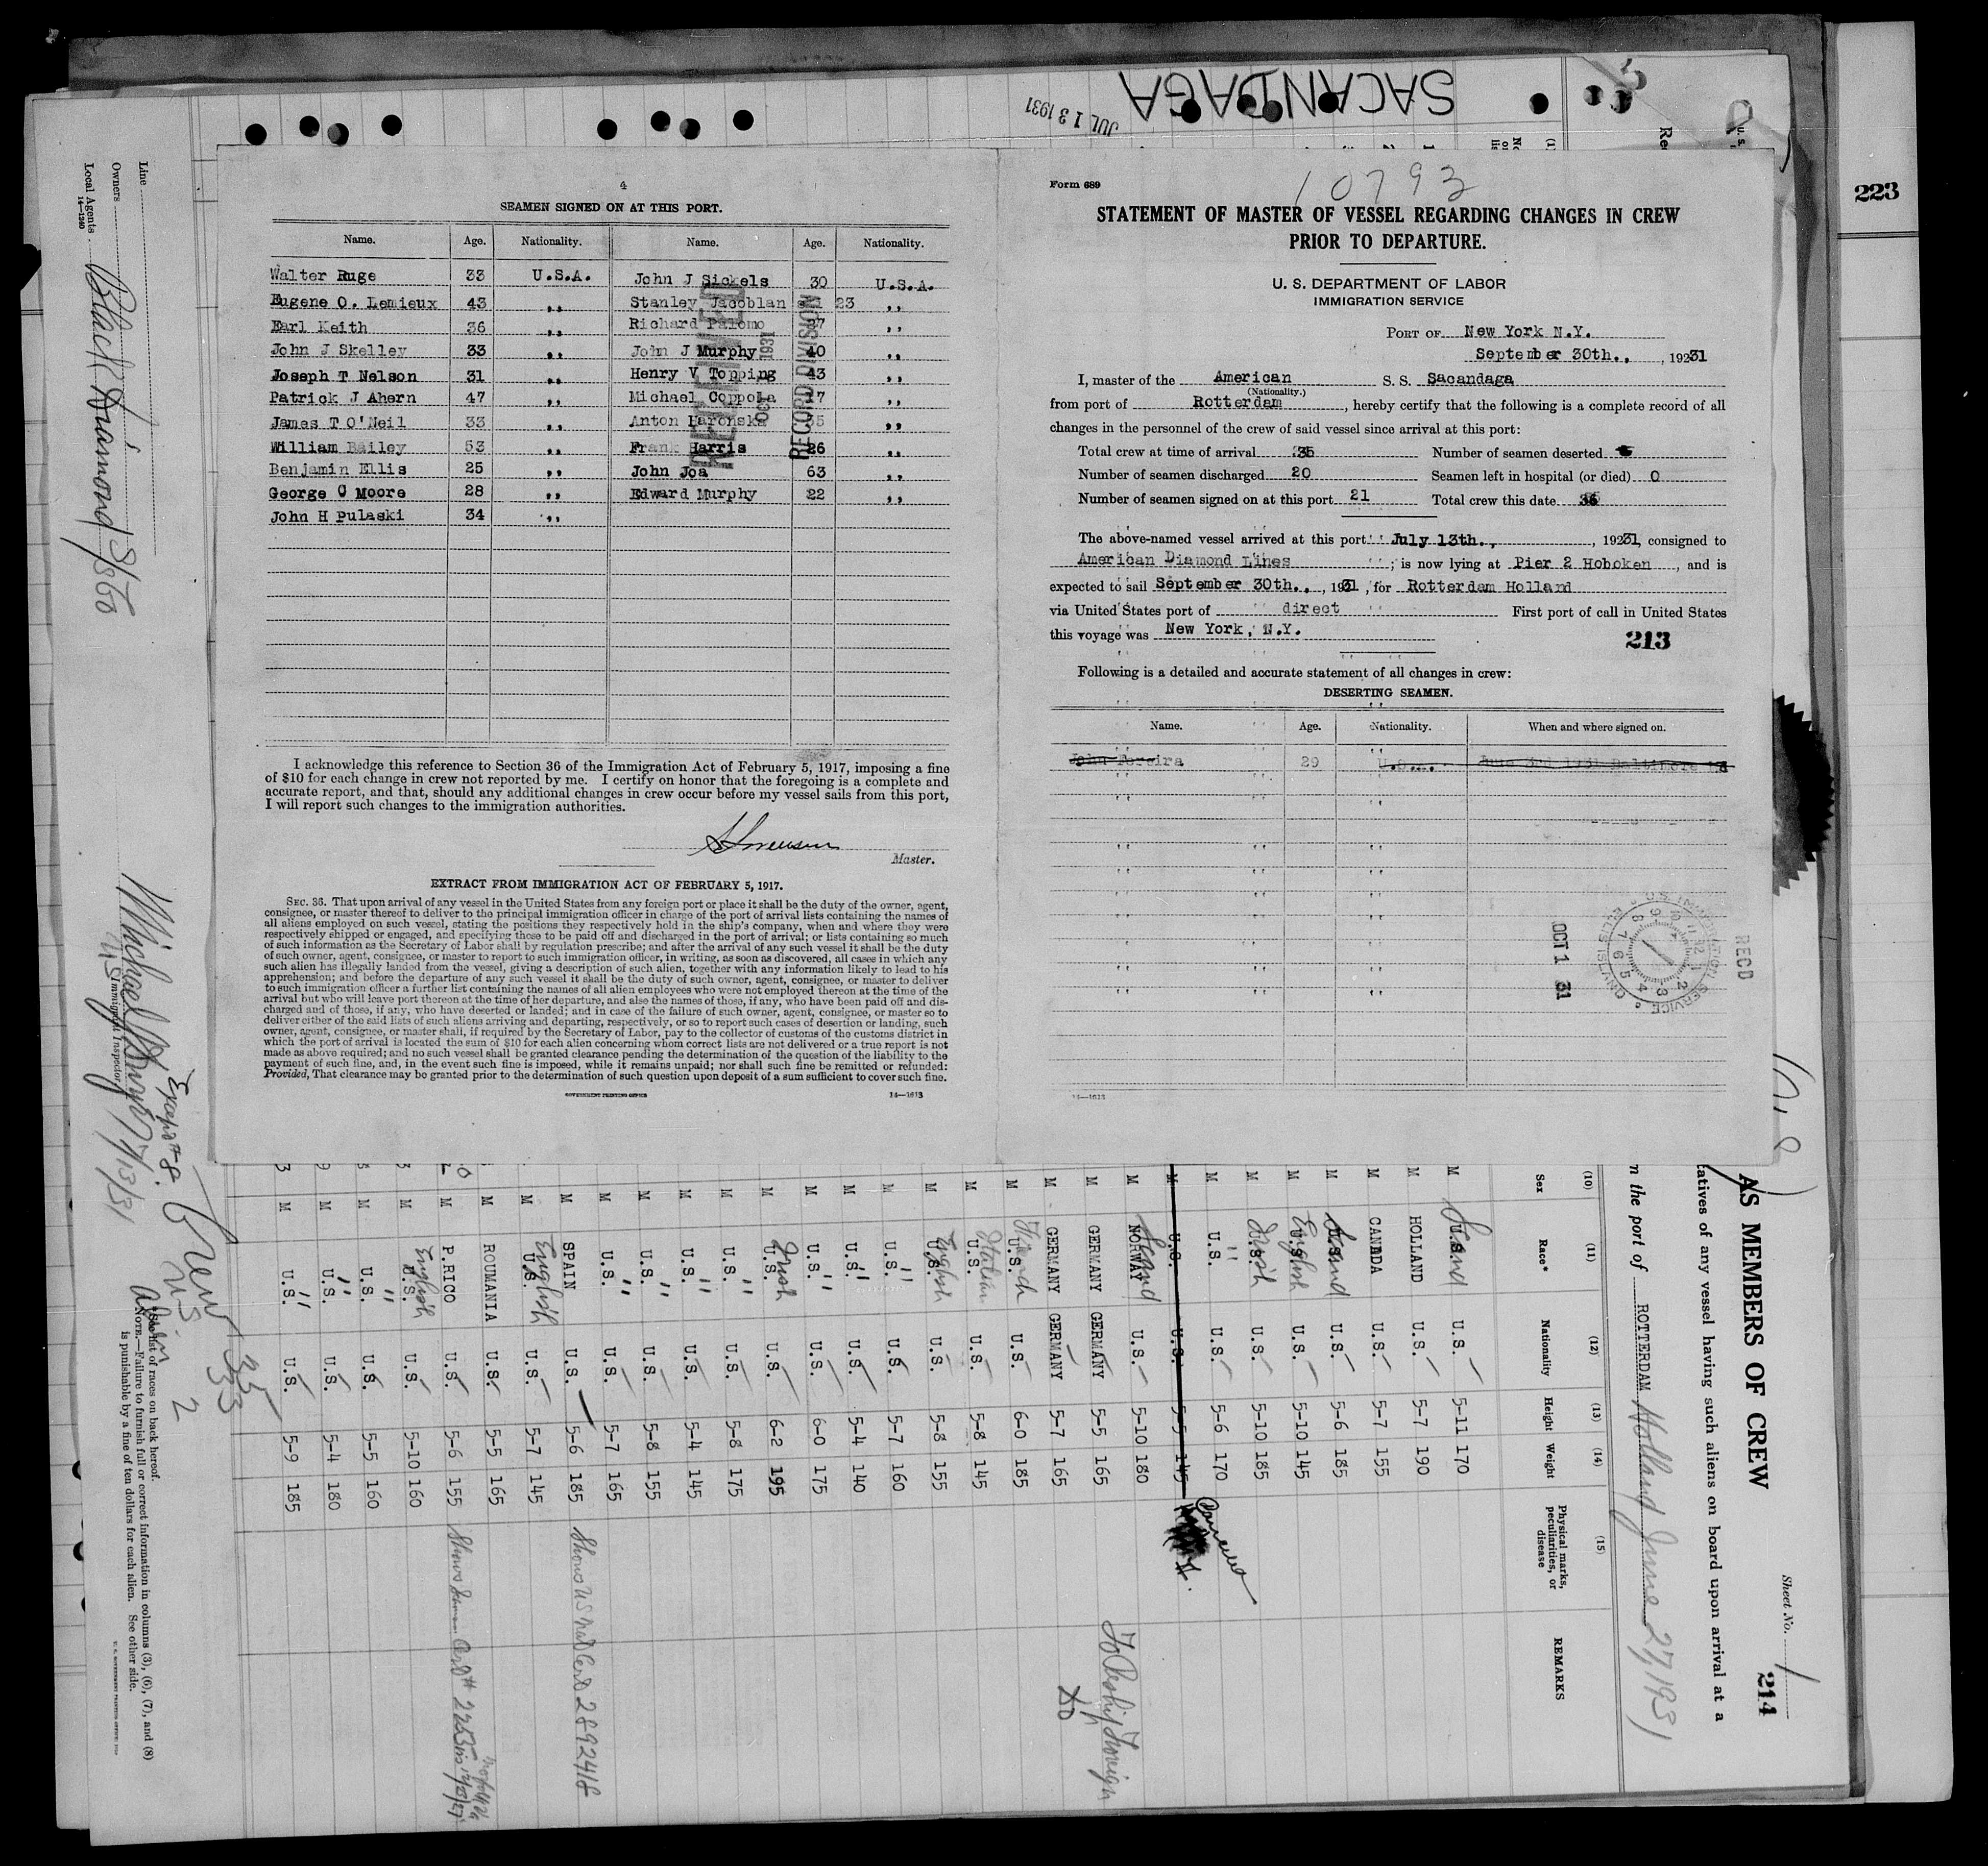 SACANDAGA
JUL 13 1931
223
4
SEAMEN SIGNED ON AT THIS PORT.
Name. Age. Nationality. Name. Age. Nationality.
Walter Ruge 33 U.S.A. John J Sickels 30 U.S.A.
Eugene O. Lemieux 43 ,, Stanley Jacoblan 23 ,,
Earl Keith 36 ,, Richard Palomo ,,
John J Skelley 33 ,, John J Murphy 40 ,,
Joseph T Nelson 31 ,, Henry V Topping 43 ,,
Patrick J Ahern 47 ,, Michael Coppola ,,
James T O'Neil 33 ,, Anton Haronska ,,
William Bailey 53 ,, Frank Harris 26 ,,
Benjamin Ellis 25 ,, John Joa 63
George C Moore 28 ,, Edward Murphy 22 ,,
John H Pulaski 34 ,,
OCT 1931
RECORD DIVISION
I acknowledge this reference to Section 36 of the Immigration Act of February 5, 1917, imposing a fine
of $10 for each change in crew not reported by me. I certify on honor that the foregoing is a complete and
accurate report, and that, should any additional changes in crew occur before my vessel sails from this port,
I will report such changes to the immigration authorities.
Master.
EXTRACT FROM IMMIGRATION ACT OF FEBRUARY 5, 1917.
SEC. 36. That upon arrival of any vessel in the United States from any foreign port or place it shall be the duty of the owner, agent,
consignee, or master thereof to deliver to the principal immigration officer in charge of the port of arrival lists containing the names of
all aliens employed on such vessel, stating the positions they respectively hold in the ship's company, when and where they were
respectively shipped or engaged, and specifying those to be paid off and discharged in the port of arrival; or lists containing so much
of such information as the Secretary of Labor shall by regulation prescribe; and after the arrival of any such vessel it shall be the duty
of such owner, agent, consignee, or master to report to such immigration officer, in writing, as soon as discovered, all cases in which any
such alien has illegally landed from the vessel, giving a description of such alien, together with any information likely to lead to his
apprehension; and before the departure of any such vessel it shall be the duty of such owner, agent, consignee, or master to deliver
to such immigration officer a further list containing the names of all alien employees who were not employed thereon at the time of the
arrival but who will leave port thereon at the time of her departure, and also the names of those, if any, who have been paid off and dis-
charged and of those, if any, who have deserted or landed; and in case of the failure of such owner, agent, consignee, or master so to
deliver either of the said lists of such aliens arriving and departing, respectively, or so to report such cases of desertion or landing, such
owner, agent, consignee, or master shall, if required by the Secretary of Labor, pay to the collector of customs of the customs district in
which the port of arrival is located the sum of $10 for each alien concerning whom correct lists are not delivered or a true report is not
made as above required; and no such vessel shall be granted clearance pending the determination of the question of the liability to the
payment of such fine, and, in the event such fine is imposed, while it remains unpaid; nor shall such fine be remitted or refunded:
Provided, That clearance may be granted prior to the determination of such question upon deposit of a sum sufficient to cover such fine.
GOVERNMENT PRINTING OFFICE 14—1613
Form 689
10792
STATEMENT OF MASTER OF VESSEL REGARDING CHANGES IN CREW
PRIOR TO DEPARTURE.
U. S. DEPARTMENT OF LABOR
IMMIGRATION SERVICE
PORT OF New York N.Y.
September 30th., , 1931
I, master of the American S. S. Sacandaga
(Nationality.)
from port of Rotterdam, hereby certify that the following is a complete record of all
changes in the personnel of the crew of said vessel since arrival at this port:
Total crew at time of arrival 35 Number of seamen deserted
Number of seamen discharged 20 Seamen left in hospital (or died) 0
Number of seamen signed on at this port 21 Total crew this date 36
The above-named vessel arrived at this port July 13th., , 1931, consigned to
American Diamond Lines ; is now lying at Pier 2 Hoboken, and is
expected to sail September 30th., , 1931, for Rotterdam Holland
via United States port of direct First port of call in United States
this voyage was New York, N.Y.
213
Following is a detailed and accurate statement of all changes in crew:
DESERTING SEAMEN.
Name. Age. Nationality. When and where signed on.
John Pereira 29 U.S.A. June 3rd 1931 Baltimore Md
OCT 1 31
RECD
U.S. IMMIGRATION SERVICE ELLIS ISLAND
14—1613
Line
Owners
Local Agents
14—1240
Black Diamond S/S Co
Immigrant Inspector
7/13/31
Crew 35
US 33
Alien 2
See list of races on back hereof.
NOTE.—Failure to furnish full or correct information in columns (3), (6), (7), and (8)
is punishable by a fine of ten dollars for each alien. See other side.
Sheet No. 1
214
AS MEMBERS OF CREW
atives of any vessel having such aliens on board upon arrival at a
the port of ROTTERDAM Holland June 27, 1931
(10) (11) (12) (13) (14) (15)
Sex Race* Nationality Height Weight Physical marks, peculiarities, or disease REMARKS
M U.S. Scand U.S. 5-11 170
M HOLLAND U.S. 5-7 190
M CANADA U.S. 5-7 155
M U.S. Scand U.S. 5-6 185
M U.S. English U.S. 5-10 145
M U.S. Irish U.S. 5-10 185
M U.S. " U.S. 5-6 170
M U.S. U.S. 5-5 145
M NORWAY Scand U.S. 5-10 180
M GERMANY GERMANY 5-5 165 To Reship Foreign
M GERMANY GERMANY 5-7 165
M U.S. U.S. 6-0 185
M U.S. Italian U.S. 5-8 145
M U.S. English U.S. 5-8 155
M U.S. " U.S. 5-7 160
M U.S. " U.S. 5-4 140
M U.S. " U.S. 6-0 175
M U.S. Irish U.S. 6-2 195
M U.S. " U.S. 5-8 175
M U.S. " U.S. 5-4 145
M U.S. " U.S. 5-8 155
M U.S. " U.S. 5-7 165
M SPAIN U.S. 5-6 185 Shows US Nat Cert 2892418
M U.S. English U.S. 5-7 145
M ROUMANIA U.S. 5-5 165
M P.RICO U.S. 5-6 155
M U.S. English U.S. 5-10 160
M U.S. " U.S. 5-5 160
M U.S. " U.S. 5-4 180
M U.S. " U.S. 5-9 185